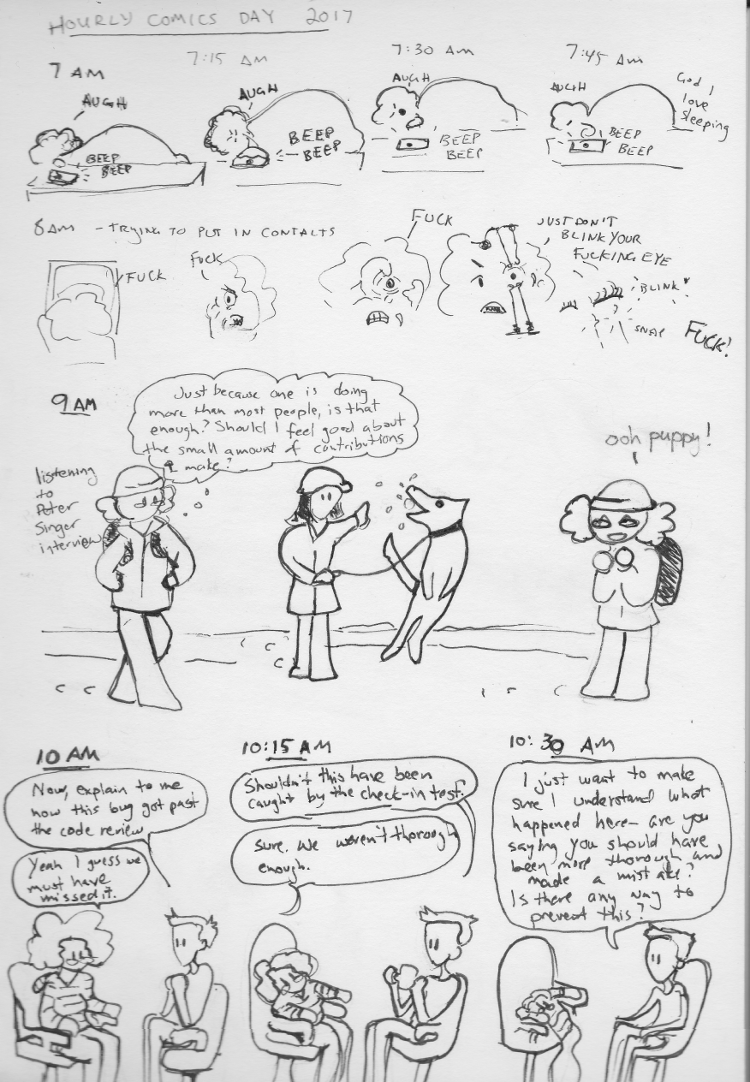 HOURLY COMICS DAY 2017
7 AM
AUGH
BEEP
BEEP
7:15 AM
AUGH
BEEP
BEEP
7:30 AM
AUGH
BEEP
BEEP
7:45 AM
AUGH
BEEP
BEEP
God I
love
sleeping
8AM - TRYING TO PUT IN CONTACTS
FUCK
FUCK
FUCK
JUST DON'T
BLINK YOUR
FUCKING EYE
BLINK
SNAP
FUCK!
9 AM
listening
to
Peter
Singer
interview
Just because one is doing
more than most people, is that
enough? Should I feel good about
the small amount of contributions
I make?
ooh puppy!
10 AM
Now, explain to me
how this bug got past
the code review
Yeah I guess we
must have
missed it.
10:15 AM
Shouldn't this have been
caught by the check-in test.
Sure. We weren't thorough
enough.
10:30 AM
I just want to make
sure I understand what
happened here- are you
saying you should have
been more thorough and
made a mistake?
Is there any way to
prevent this?